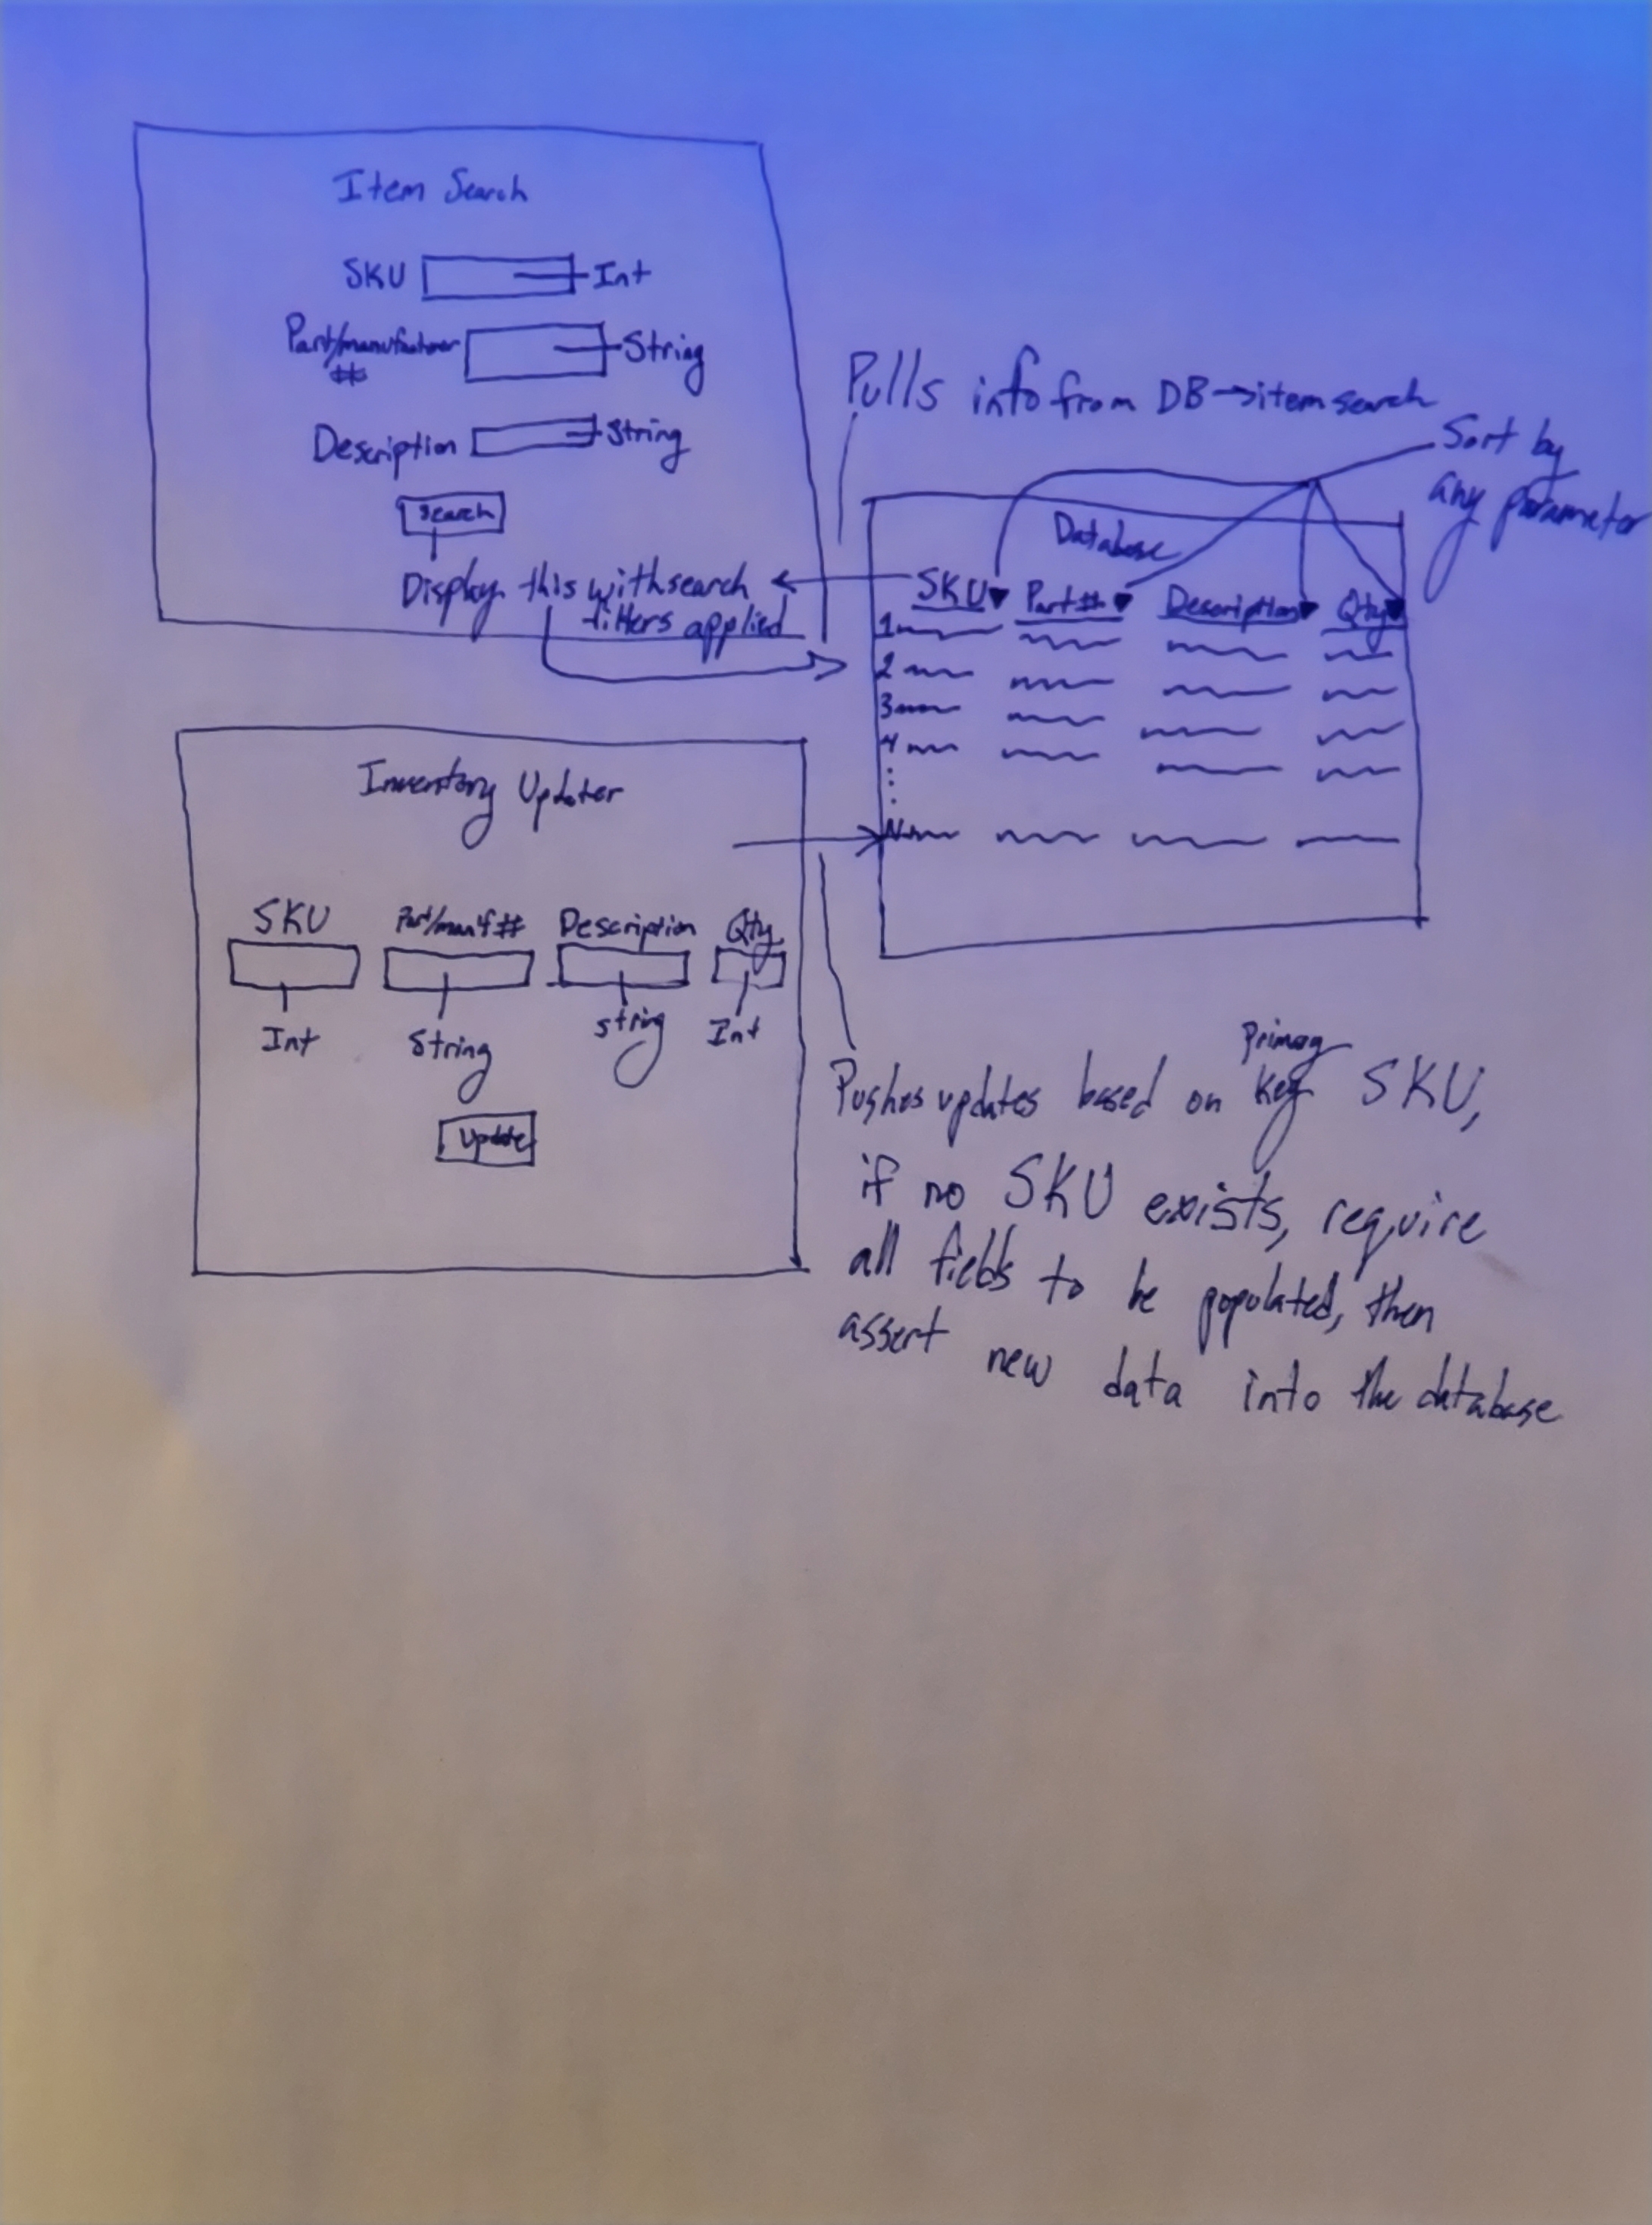 Item Search
SKU Int
Part/manufacturer
# String
Description String
Search
Display this with search
filters applied
Pulls info from DB→item search
Sort by
any parameter
Database
SKU▼ Part#▼ Description▼ Qty▼
1
2
3
4
N
Inventory Updater
SKU Part/manf# Description Qty
Int String string Int
Update
Primary
Pushes updates based on key SKU,
if no SKU exists, require
all fields to be populated, then
assert new data into the database